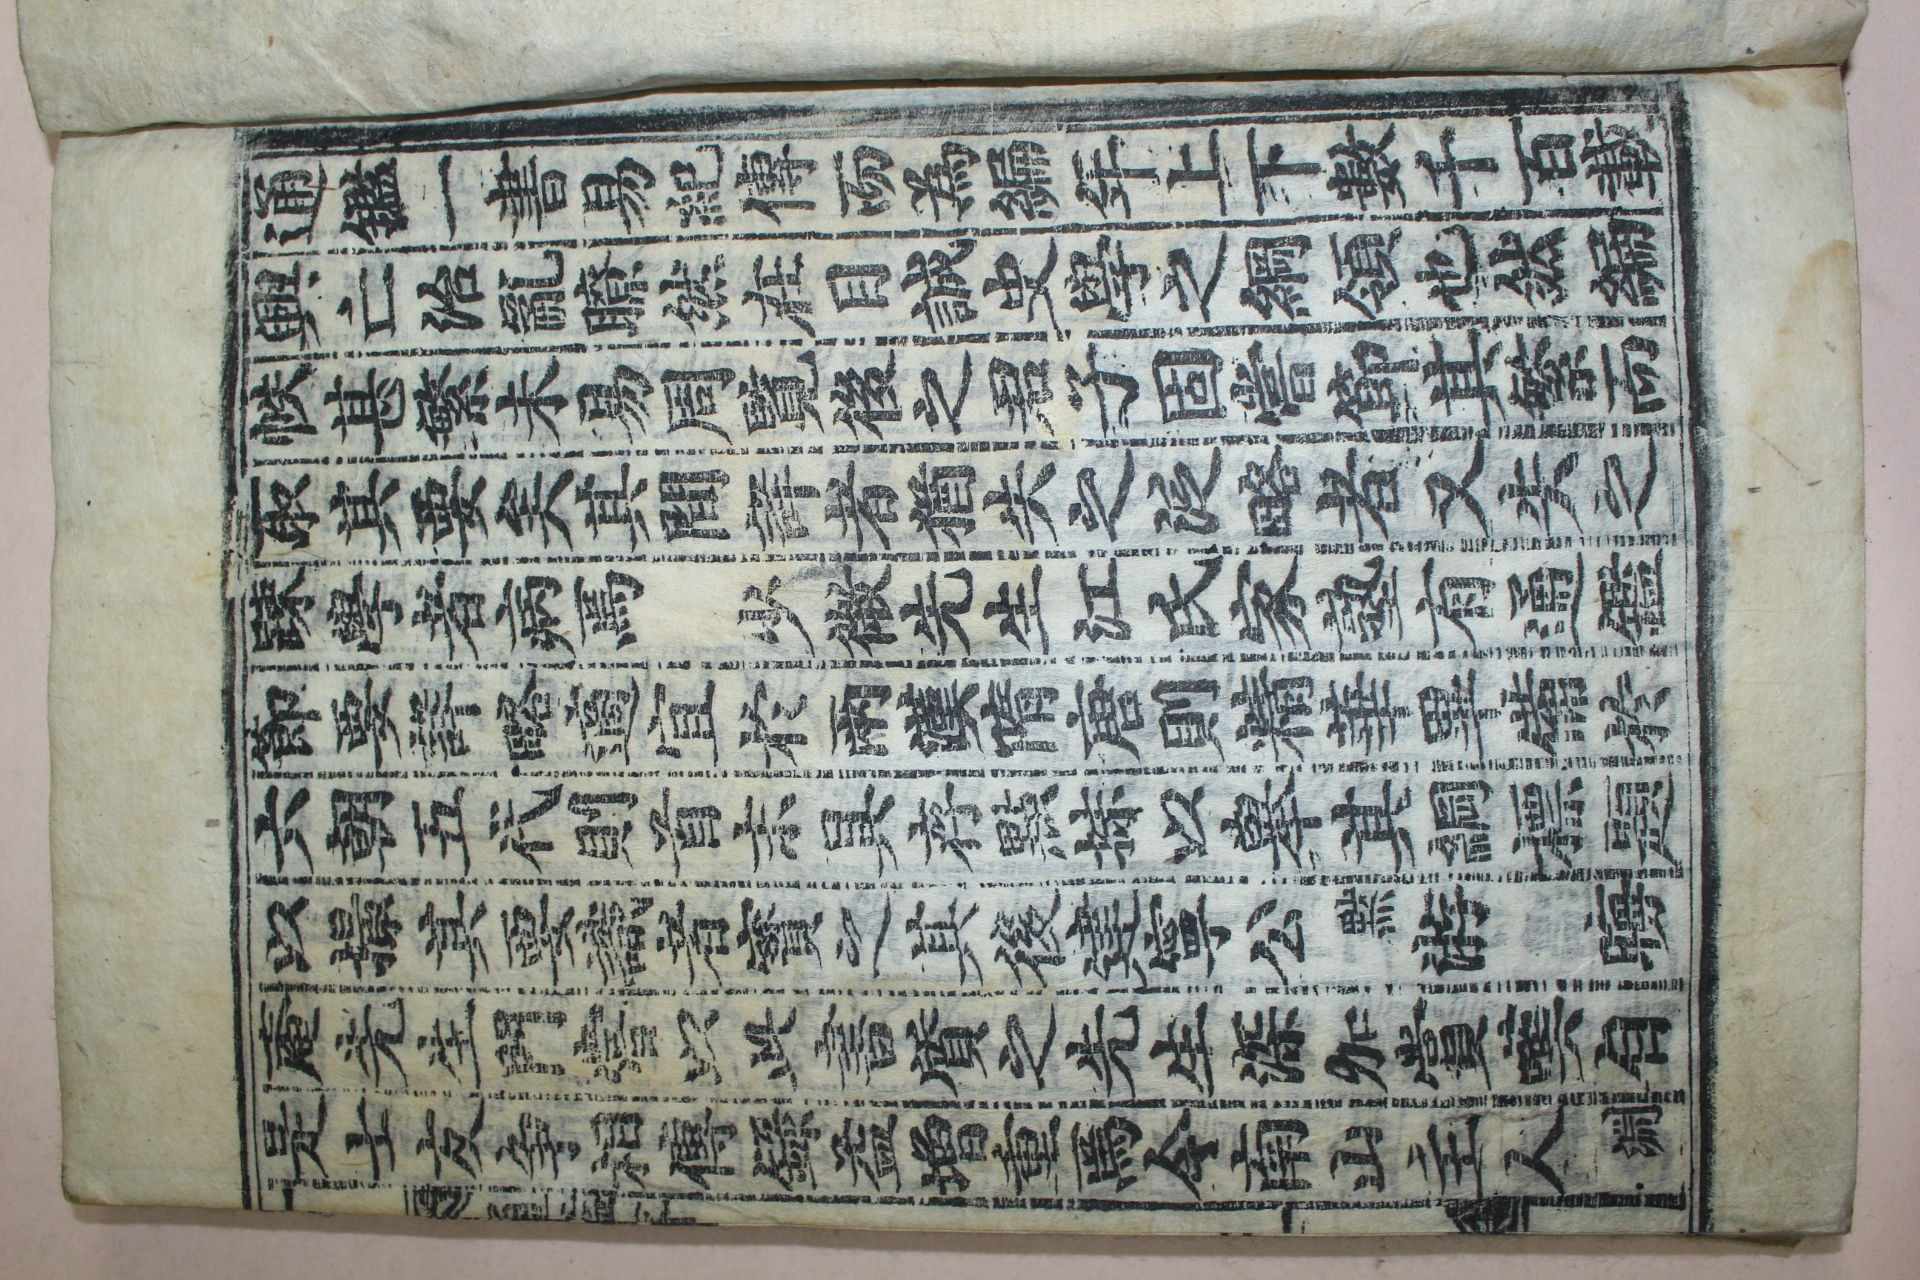 通鑑一書易紀傳而為編年上下數千百載
興亡治亂瞭然在目誠史學之綱領也然編
帙甚繁未易周覽後之君子固嘗節其繁而
取其要矣其間詳者猶失之泛略者又失之
踈學者病焉 少微先生江氏家塾有通鑑
節要詳略適宜於兩漢隋唐則精華畢備於
六朝五代則首末具存點抹以舉其綱標題
以撮其要識者寶之其後建寧公默游 晦
庵先生門嘗以此書質之先生深加賞歎自
是士友爭相傳錄益增重焉今南山主人淵